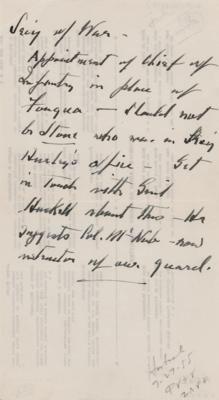 Secy of War —
Appointment of Chief of
Infantry in place of
Fouqua — should not
be Stone who was in Secy
Hurley's office — Get
in touch with Genl
Haskell about this — He
suggests Col. McNabe — now
instructor of our guard.